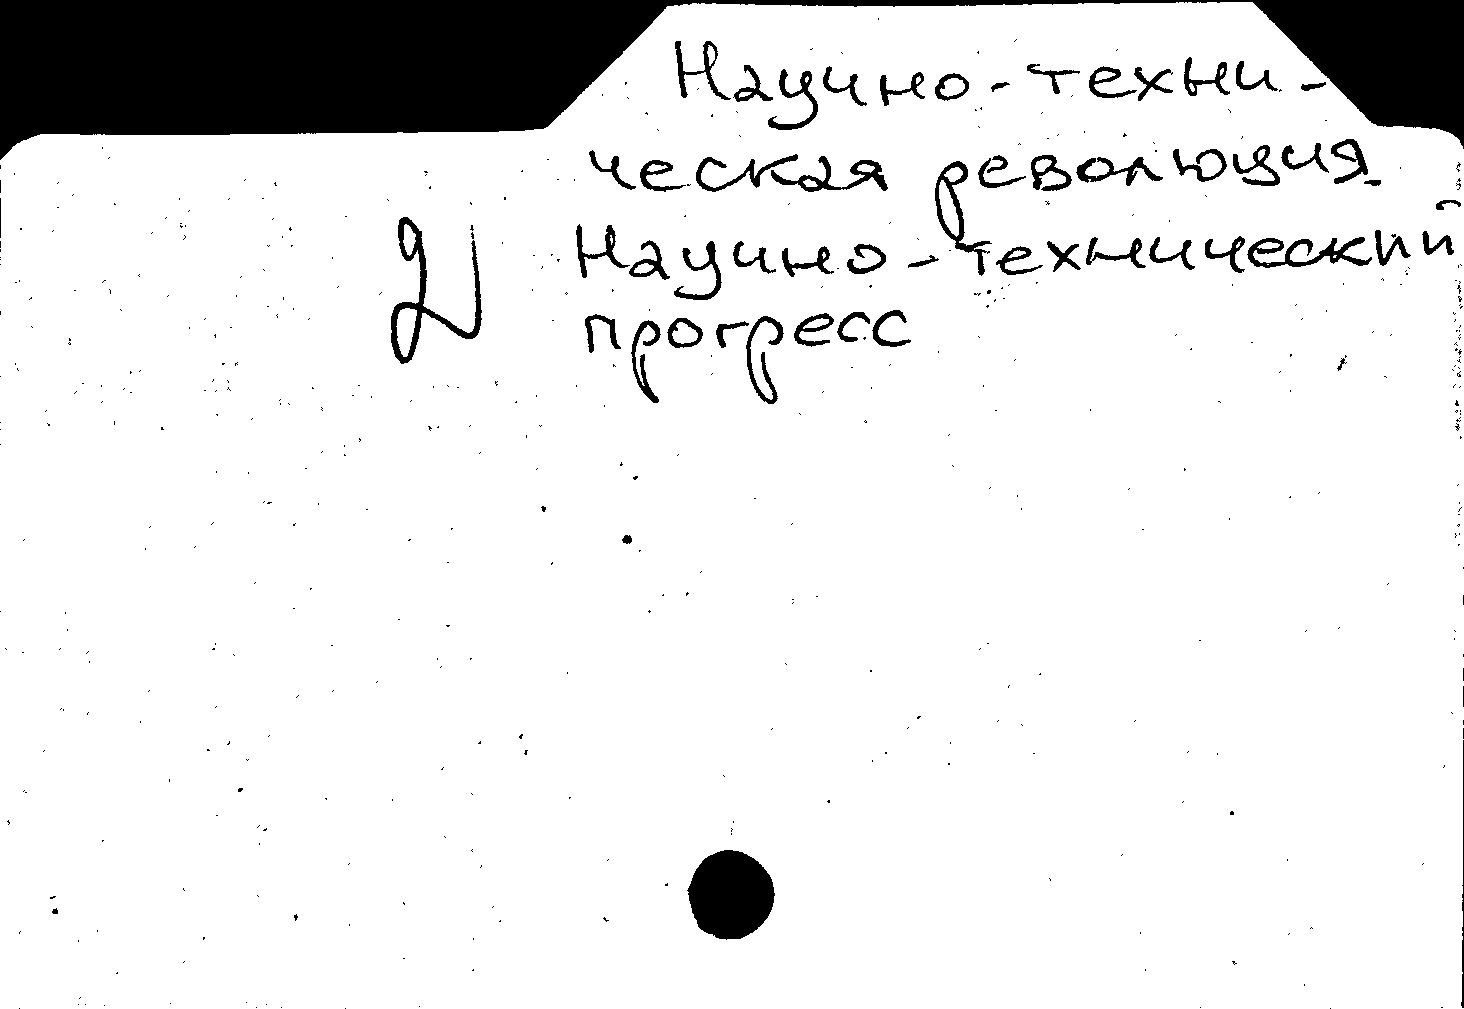 Научно-техни-
ческая революция.
Научно-технический
прогресс